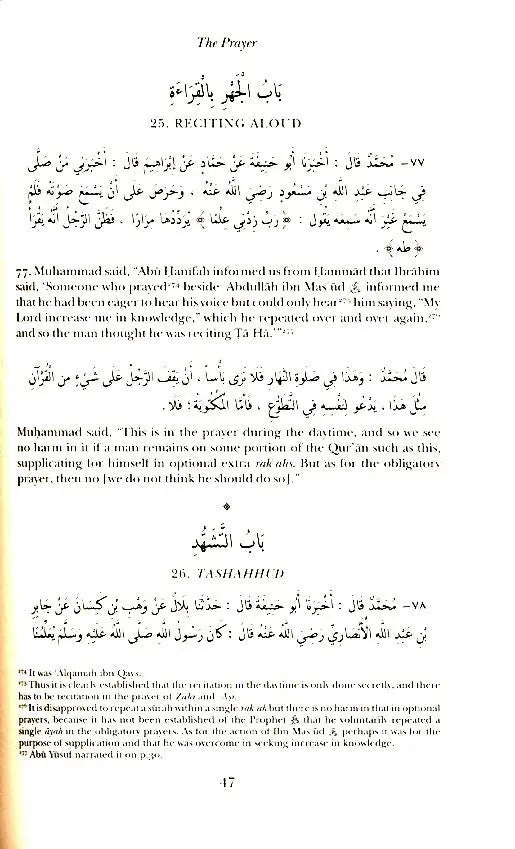 The Prayer
بَابُ الْجَهْرِ بِالْقِرَاءَةِ
25. RECITING ALOUD
٧٧- مُحَمَّدٌ قَالَ : أَخْبَرَنَا أَبُو حَنِيفَةَ عَنْ حَمَّادٍ عَنْ إِبْرَاهِيمَ قَالَ : أَخْبَرَنِي مَنْ صَلَّى
فِي جَانِبِ عَبْدِ اللَّهِ بْنِ مَسْعُودٍ رَضِيَ اللَّهُ عَنْهُ ، وَحَرَصَ عَلَى أَنْ يَسْمَعَ صَوْتَهُ فَلَمْ
يَسْمَعْ غَيْرَ أَنَّهُ سَمِعَهُ يَقُولُ : ﴿ رَبِّ زِدْنِي عِلْمًا ﴾ يُرَدِّدُهَا مِرَارًا ، فَظَنَّ الرَّجُلُ أَنَّهُ يَقْرَأُ
﴿ طه ﴾ .
77. Muhammad said, "Abū Ḥanīfah informed us from Ḥammād that Ibrāhīm
said, 'Someone who prayed²⁷⁴ beside ʿAbdullāh ibn Masʿūd ؓ informed me
that he had been eager to hear his voice but could only hear²⁷⁵ him saying, "My
Lord increase me in knowledge," which he repeated over and over again,²⁷⁶
and so the man thought he was reciting Ṭā Hā.'"²⁷⁷
قَالَ مُحَمَّدٌ : وَهَذَا فِي صَلٰوةِ النَّهَارِ فَلَا نَرَى بَأْسًا ، أَنْ يَقِفَ الرَّجُلُ عَلَى شَيْءٍ مِنَ الْقُرْآنِ
مِثْلِ هَذَا ، يَدْعُو لِنَفْسِهِ فِي التَّطَوُّعِ ، فَأَمَّا الْمَكْتُوبَةُ : فَلَا .
Muḥammad said, "This is in the prayer during the daytime, and so we see
no harm in it if a man remains on some portion of the Qur'ān such as this,
supplicating for himself in optional extra rakʿahs. But as for the obligatory
prayer, then no [we do not think he should do so]."
بَابُ التَّشَهُّدِ
26. TASHAHHUD
٧٨- مُحَمَّدٌ قَالَ : أَخْبَرَنَا أَبُو حَنِيفَةَ قَالَ : حَدَّثَنَا بِلَالٌ عَنْ وَهْبِ بْنِ كَيْسَانَ عَنْ جَابِرِ
بْنِ عَبْدِ اللَّهِ الْأَنْصَارِيِّ رَضِيَ اللَّهُ عَنْهُ قَالَ : كَانَ رَسُولُ اللَّهِ صَلَّى اللَّهُ عَلَيْهِ وَسَلَّمَ يُعَلِّمُنَا
²⁷⁴ It was ʿAlqamah ibn Qays.
²⁷⁵ Thus it is clearly established that the recitation in the daytime is only done secretly, and there
has to be recitation in the prayer of Ẓuhr and ʿAṣr.
²⁷⁶ It is disapproved to repeat a sūrah within a single rakʿah but there is no harm in that in optional
prayers, because it has not been established of the Prophet ﷺ that he voluntarily repeated a
single āyah in the obligatory prayers. As for the action of Ibn Masʿūd ؓ, perhaps it was for the
purpose of supplication and that he was overcome in seeking increase in knowledge.
²⁷⁷ Abū Yūsuf narrated it on p.30.
47